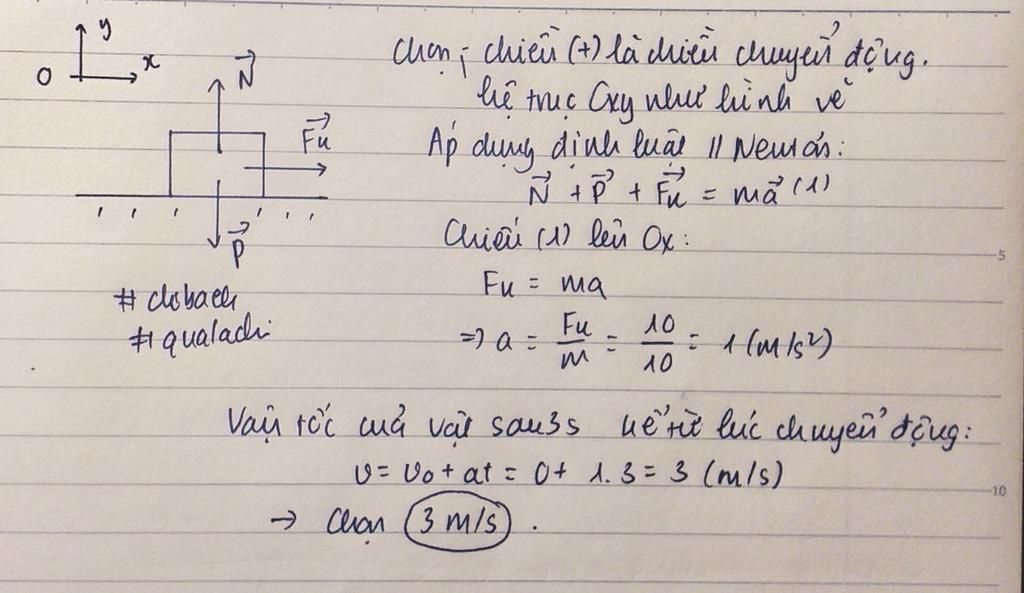 y
O
x
N⃗
Fk⃗
P⃗
Chọn: chiều (+) là chiều chuyển động.
hệ trục Oxy như hình vẽ
Áp dụng định luật II Newton:
N⃗ + P⃗ + Fk⃗ = ma⃗ (1)
Chiếu (1) lên Ox:
Fk = ma
=> a = Fk/m = 10/10 = 1 (m/s²)
# clobach
# qualachi
Vận tốc của vật sau 3s kể từ lúc chuyển động:
v = v0 + at = 0 + 1.3 = 3 (m/s)
→ Chọn 3 m/s.
5
10